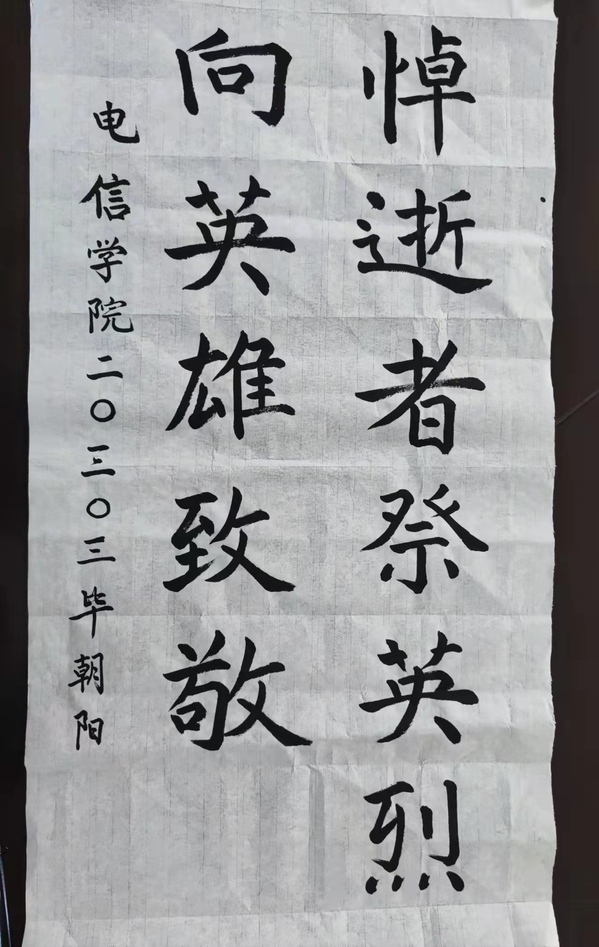 悼逝者祭英烈
向英雄致敬
电信学院二〇三〇三毕朝阳